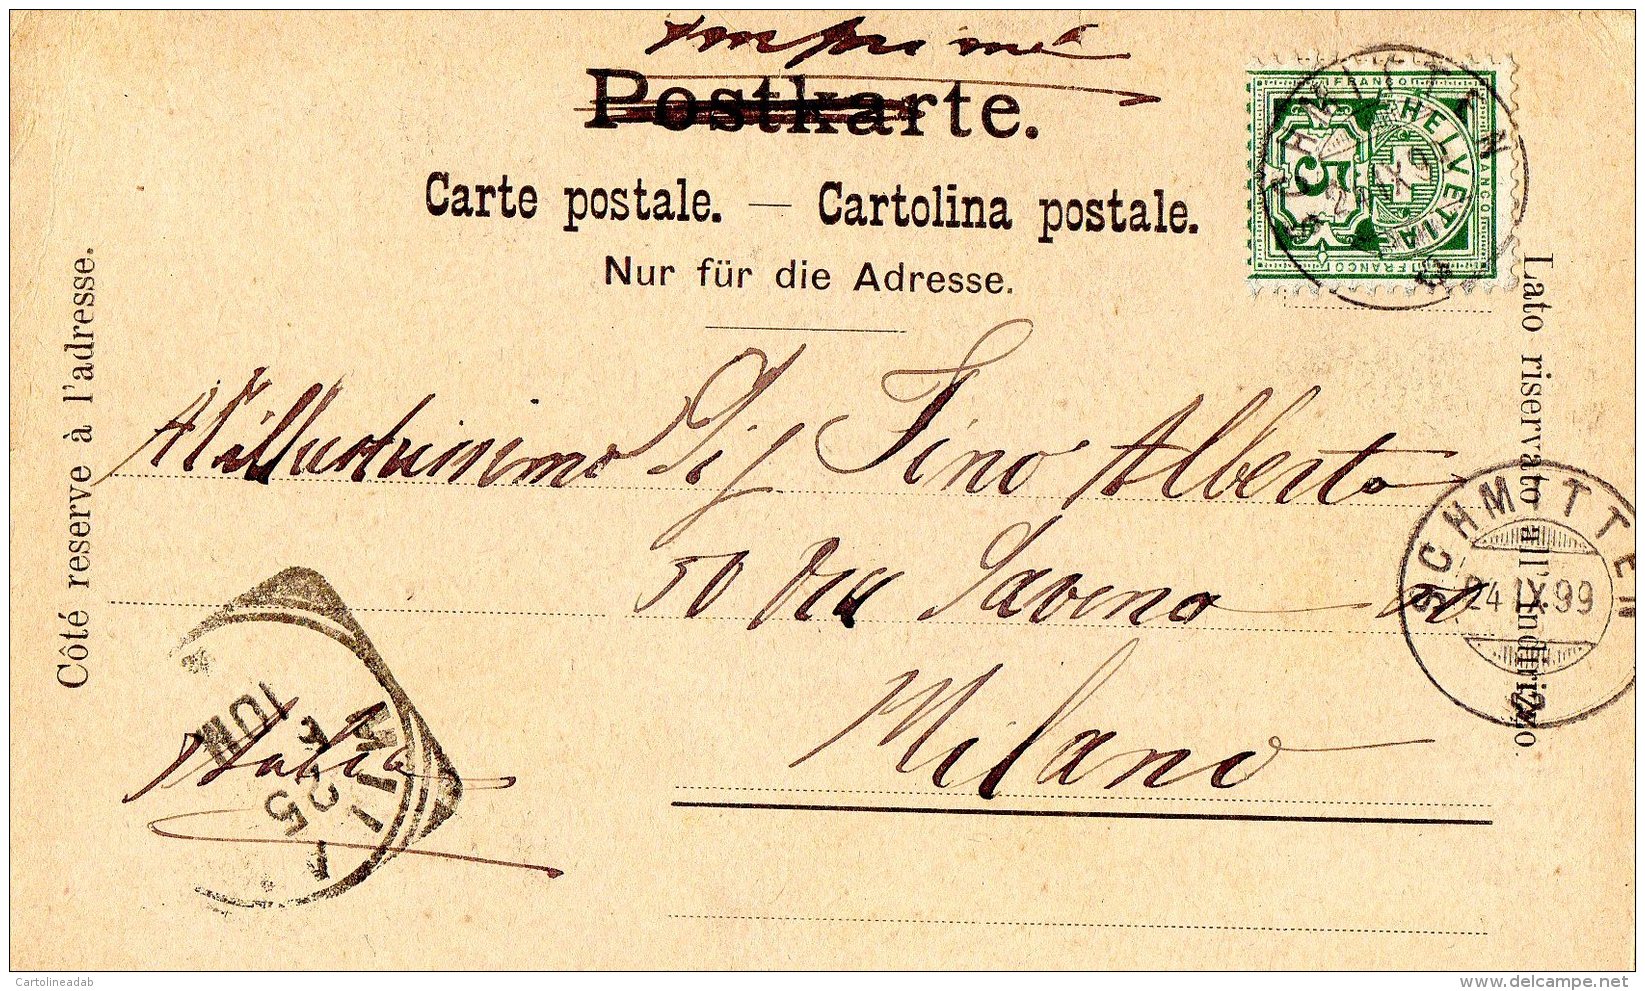 Imprimé
Postkarte.
Carte postale. — Cartolina postale.
Nur für die Adresse.
Côté reserve à l'adresse.
Lato riservato all'indirizzo.
FRANCO
HELVETIA
5
FRANCO
FRANCO
SCHMITTEN
All'illustrissimo Sig Fino Alberto
50 Via Saveno 50
Milano
Italia
SCHMITTEN
24 IX.99
MIL
25
Cartolineadab
delcampe.net